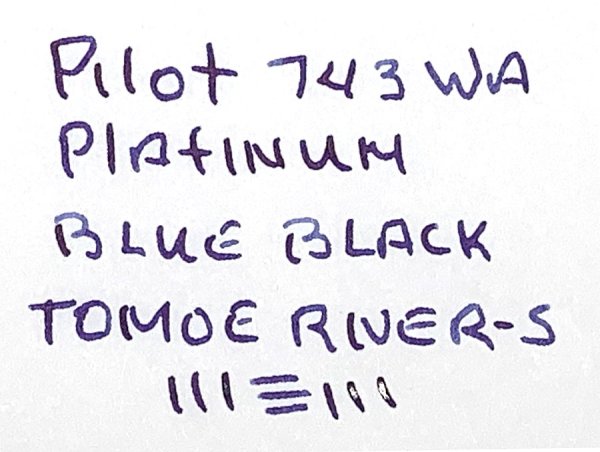 Pilot 743 WA
PlAtINUM
BLUE BLACK
TOMOE RIVER-S
III≡III